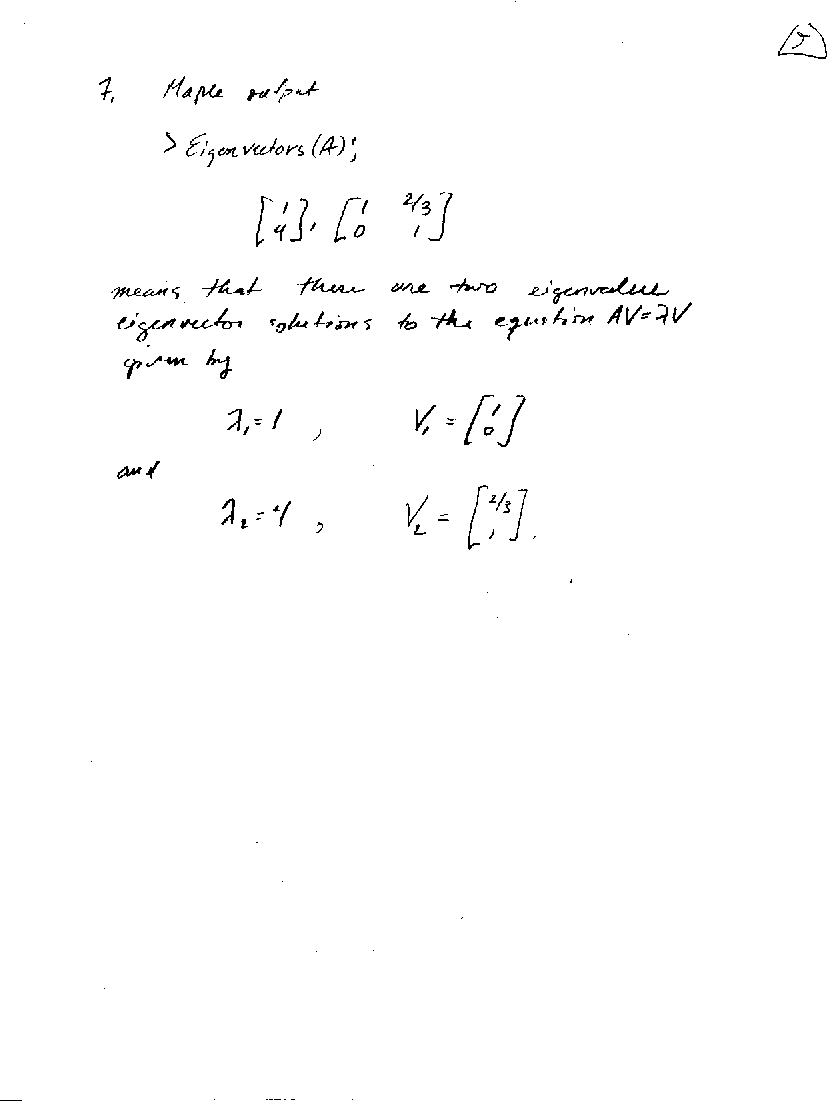 5
7. Maple output
> Eigenvectors(A);
[1 4], [1 2/3 0 1]
means that there are two eigenvalue
eigenvector solutions to the equation AV=λV
given by
λ₁=1 , V₁ = [1 0]
and
λ₂=4 , V₂ = [2/3 1].